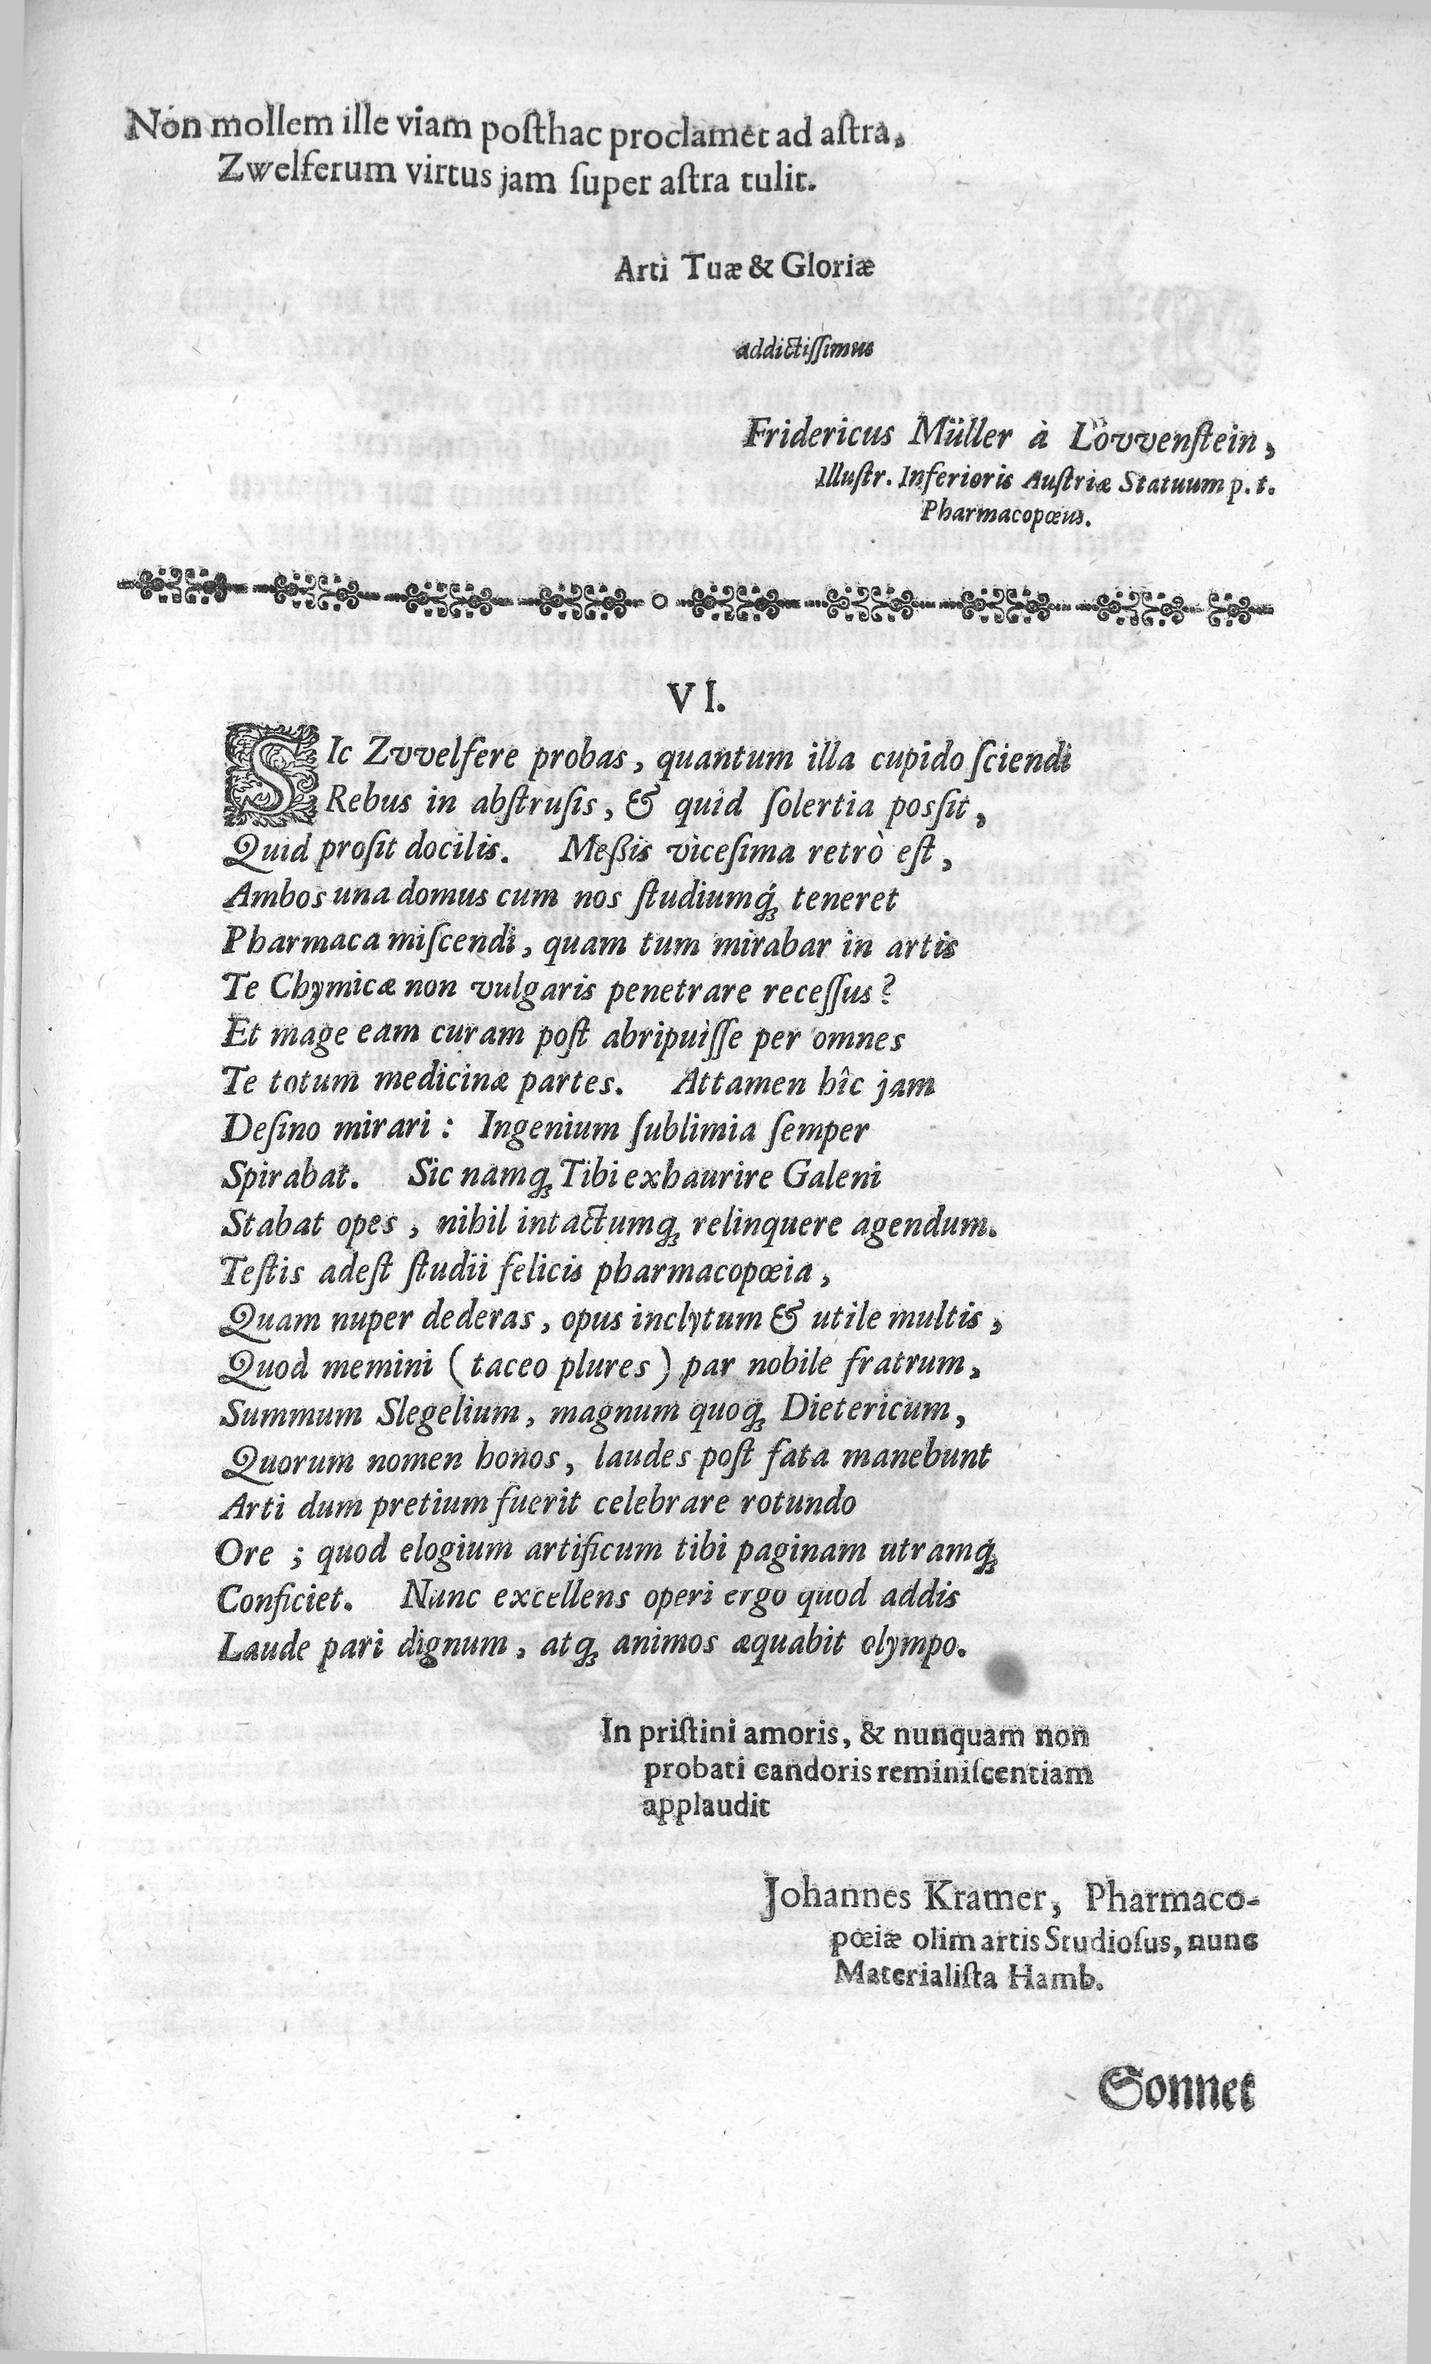 Non mollem ille viam poſthac proclamet ad aſtra,
Zwelferum virtus jam ſuper aſtra tulit.
Arti Tuæ & Gloriæ
addictiſſimus
Fridericus Müller à Lövvenſtein,
Illuſtr. Inferioris Auſtriæ Statuum p. t.
Pharmacopœus.
VI.
SIc Zvvelfere probas, quantum illa cupido ſciendi
Rebus in abſtruſis, & quid ſolertia poſſit,
Quid proſit docilis. Meßis viceſima retrò eſt,
Ambos una domus cum nos ſtudiumq́ꝫ teneret
Pharmaca miſcendi, quam tum mirabar in artis
Te Chymicæ non vulgaris penetrare receſſus?
Et mage eam curam poſt abripuiſſe per omnes
Te totum medicinæ partes. Attamen hîc jam
Deſino mirari: Ingenium ſublimia ſemper
Spirabat. Sic namqꝫ Tibi exhaurire Galeni
Stabat opes, nihil intactumqꝫ relinquere agendum.
Teſtis adeſt ſtudii felicis pharmacopœia,
Quam nuper dederas, opus inclytum & utile multis,
Quod memini (taceo plures) par nobile fratrum,
Summum Slegelium, magnum quoqꝫ Dietericum,
Quorum nomen honos, laudes poſt fata manebunt
Arti dum pretium fuerit celebrare rotundo
Ore; quod elogium artificum tibi paginam utramq́ꝫ
Conficiet. Nunc excellens operi ergo quod addis
Laude pari dignum, atqꝫ animos æquabit olympo.
In priſtini amoris, & nunquam non
probati candoris reminiſcentiam
applaudit
Johannes Kramer, Pharmaco-
pœiæ olim artis Studioſus, nunc
Materialiſta Hamb.
Sonnet